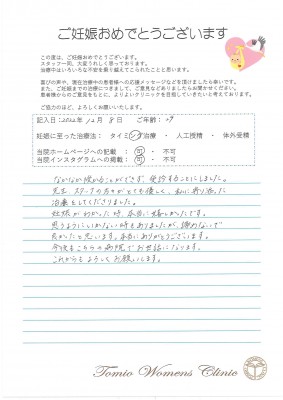 ご妊娠おめでとうございます
この度は、ご妊娠おめでとうございます。
スタッフ一同、大変うれしく思っております。
治療中はいろいろな不安を乗り越えてこられたことと思います。
喜びの声や、現在治療中の患者様への応援メッセージなどを頂けましたら幸いです。
また、ご妊娠までの治療につきまして、ご意見などありましたらお聞かせください。
患者様からのご意見をもとに、よりよいクリニックを目指していきたいと考えております。
ご協力のほど、よろしくお願いします。
記入日:2022年 12月 8日 ご年齢: 29
妊娠に至った治療法: タイミング治療 ・ 人工授精 ・ 体外受精
当院ホームページへの記載 : 可 ・ 不可
当院インスタグラムへの掲載 : 可 ・ 不可
なかなか授かることができず、受診することにしました。
先生、スタッフの方々がとても優しく、私に寄り添った
治療をしてくださりました。
妊娠がわかった時、本当に嬉しかったです。
思うようにいかない時もありましたが、諦めないで
良かったと思います。本当にありがとうございます。
今後もこちらの病院でお世話になります。
これからもよろしくお願いします。
Tomio Womens Clinic